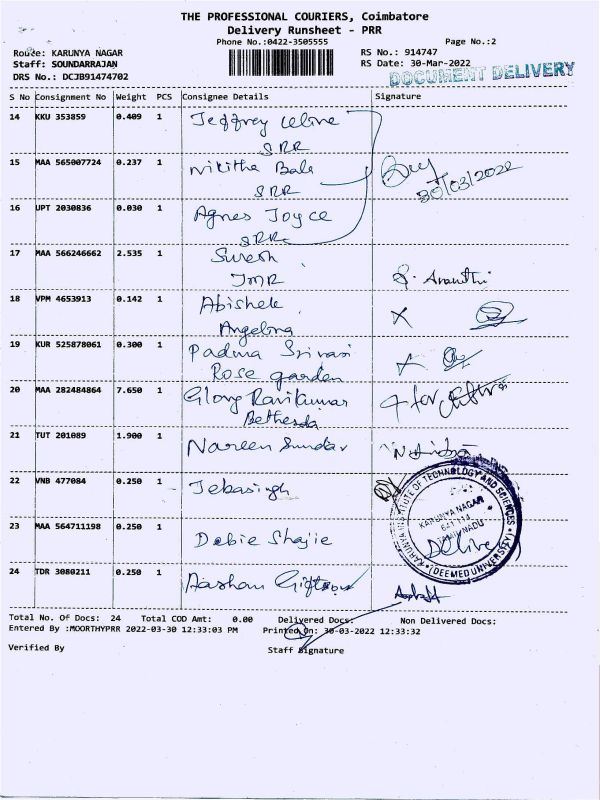 THE PROFESSIONAL COURIERS, Coimbatore
Delivery Runsheet - PRR
Phone No.:0422-3505555
Page No.:2
Route: KARUNYA NAGAR
RS No.: 914747
Staff: SOUNDARRAJAN
RS Date: 30-Mar-2022
DRS No.: DCJB91474702
DOCUMENT DELIVERY
S No Consignment No Weight PCS Consignee Details Signature
14 KKU 353859 0.409 1 Jeffrey
SRR
15 MAA 565007724 0.237 1 Nikitha Bala
SRR
30/03/2022
16 UPT 2030836 0.030 1 Agnes Joyce
SRR
17 MAA 566246662 2.535 1 Suresh
JMR
18 VPM 4653913 0.142 1 Abishek
Angelina
19 KUR 525878061 0.300 1 Padma
Rose garden
20 MAA 282484864 7.650 1 Glory Ravikumar
Bethesda
for
21 TUT 201089 1.900 1 Nareen Sundar
22 VNB 477084 0.250 1 Jebasingh
23 MAA 564711198 0.250 1 Debie Shajie
24 TDR 3080211 0.250 1
KARUNYA INSTITUTE OF TECHNOLOGY AND SCIENCES
(DEEMED UNIVERSITY)
KARUNYA NAGAR
641 114
TAMILNADU
Total No. Of Docs: 24 Total COD Amt: 0.00 Delivered Docs: Non Delivered Docs:
Entered By :MOORTHYPRR 2022-03-30 12:33:03 PM Printed On: 30-03-2022 12:33:32
Verified By
Staff Signature